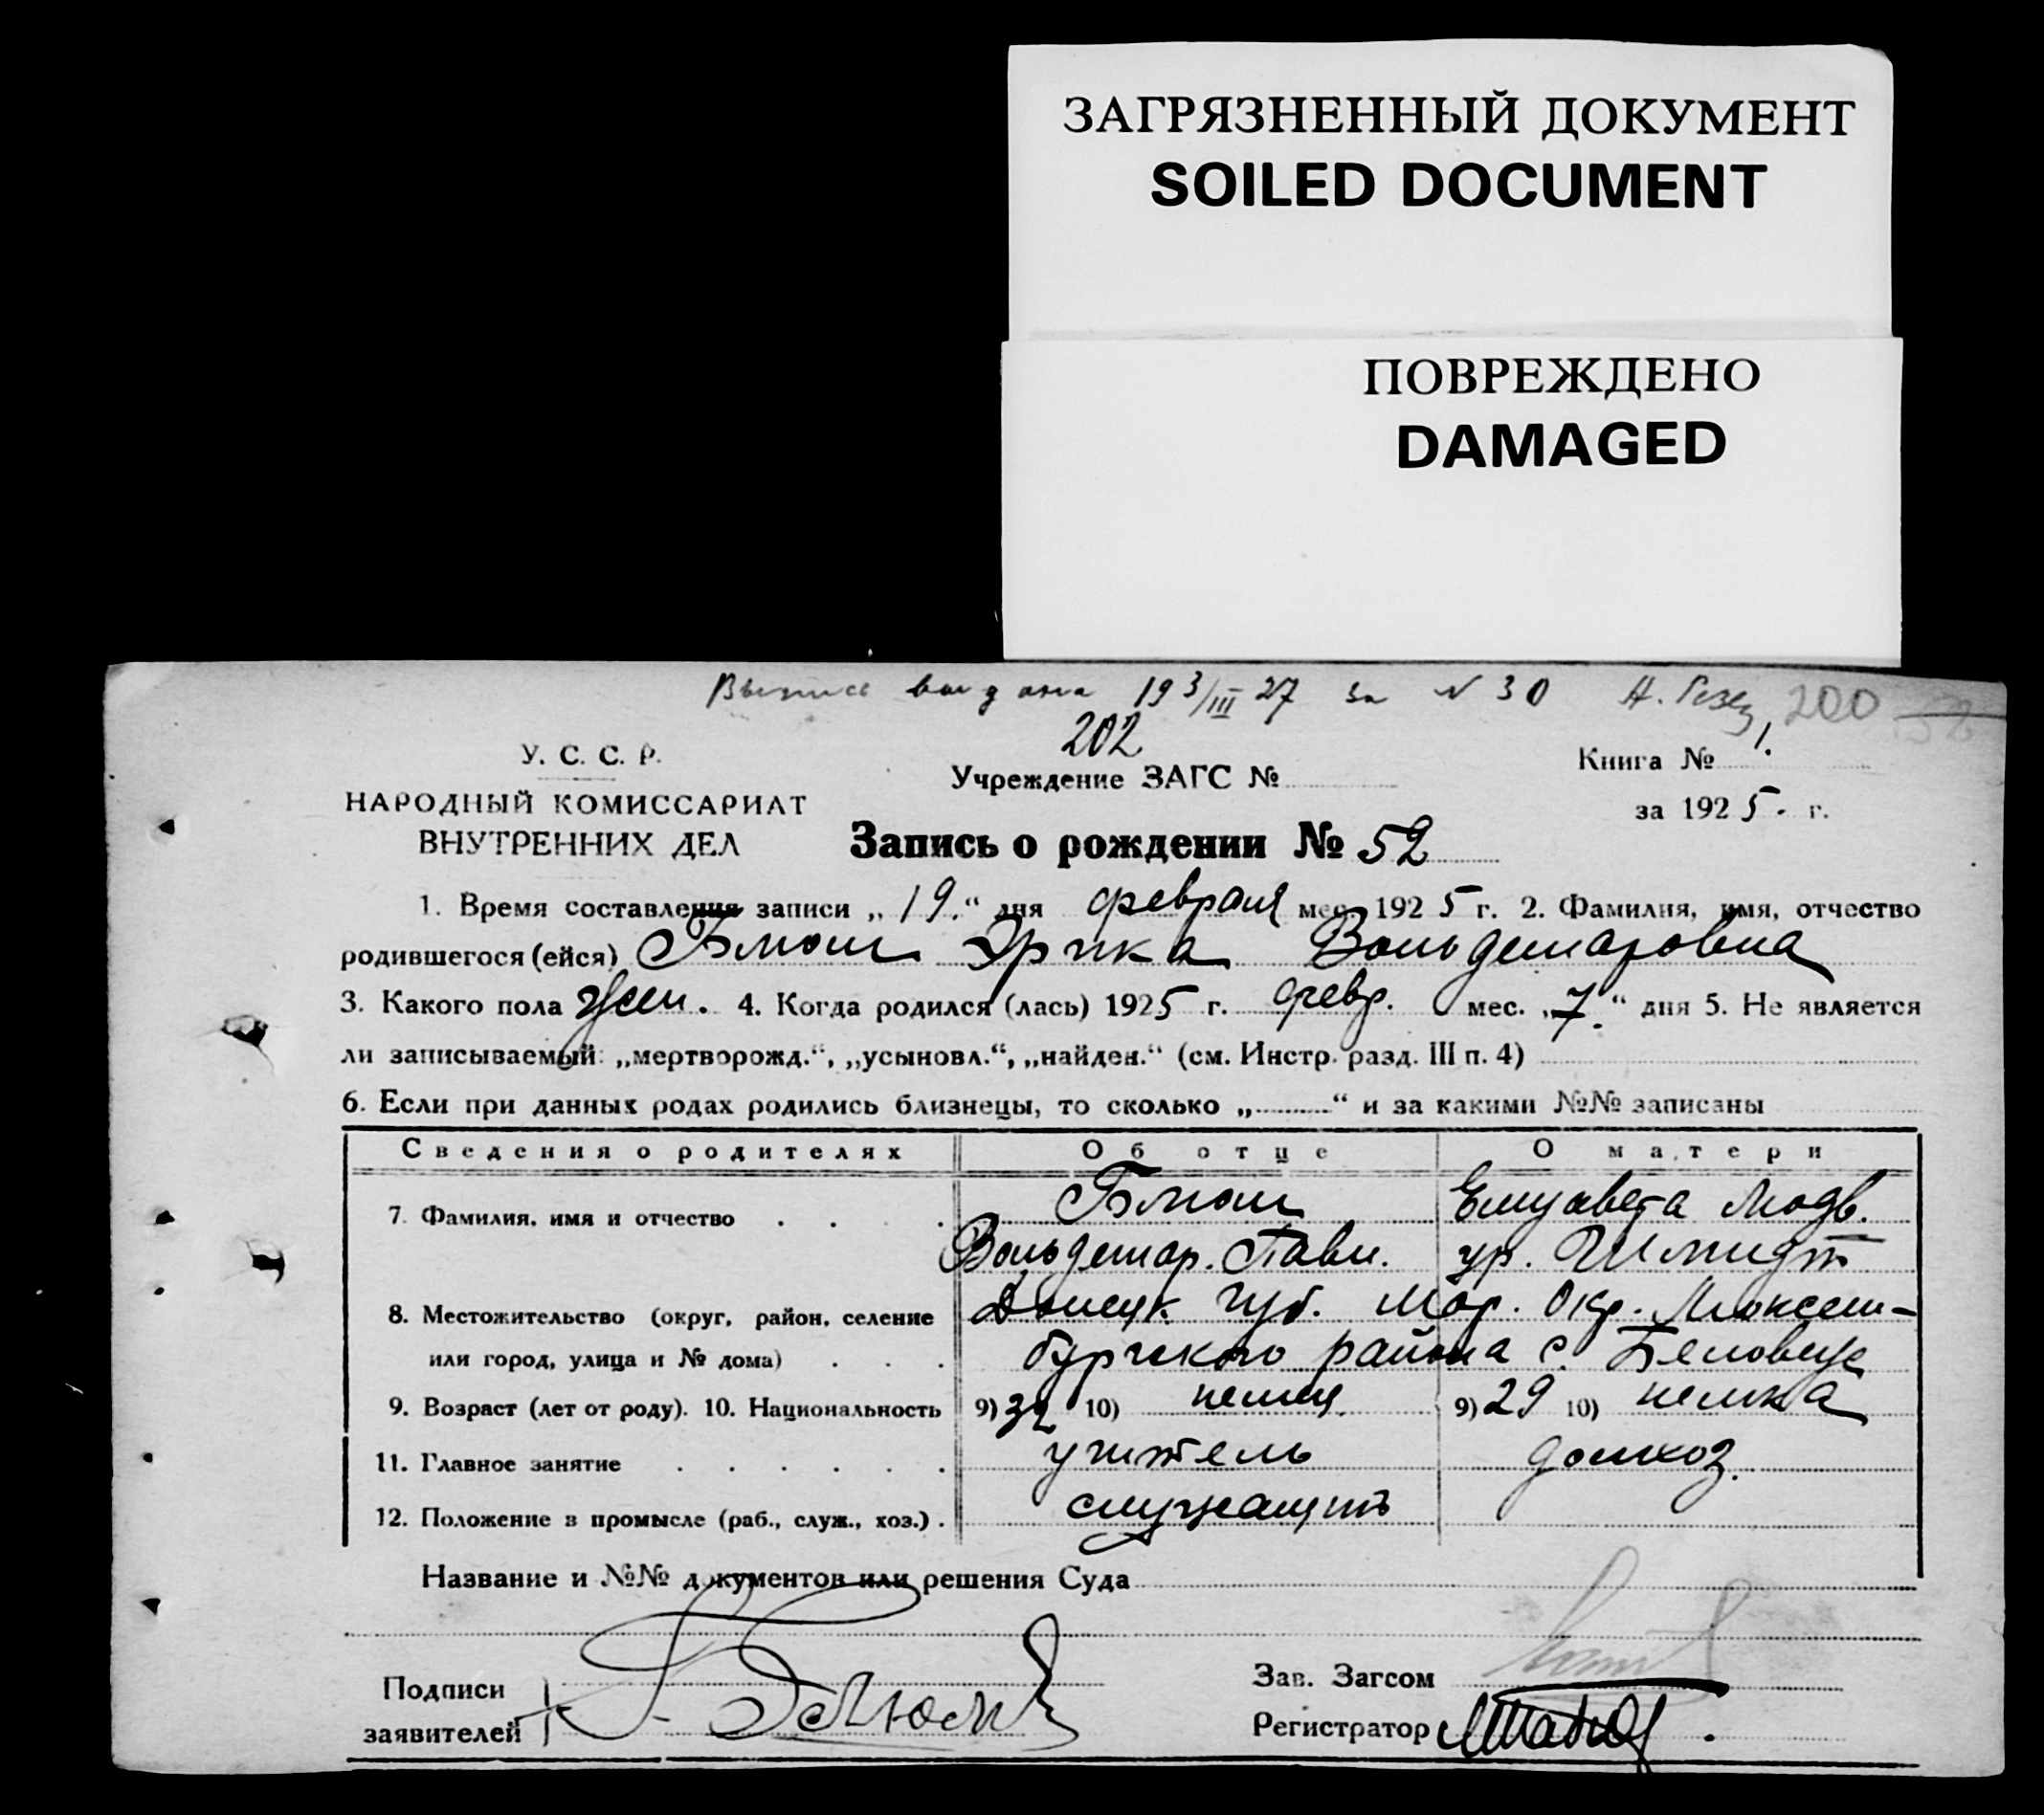 ЗАГРЯЗНЕННЫЙ ДОКУМЕНТ
SOILED DOCUMENT
ПОВРЕЖДЕНО
DAMAGED
Выпись выдана 193/III 27 за № 30 200
У. С. С. Р. 202 Книга № 1.
Учреждение ЗАГС №
НАРОДНЫЙ КОМИССАРИАТ за 1925. г.
ВНУТРЕННИХ ДЕЛ Запись о рождении № 52
1. Время составления записи „ 19. “ дня февраля мес. 1925 г. 2. Фамилия, имя, отчество
родившегося (ейся) Блюм Эрика Вольдемаровна
3. Какого пола жен. 4. Когда родился (лась) 1925 г. февр. мес. „7.“ дня 5. Не является
ли записываемый: „мертворожд.“, „усыновл.“, „найден.“ (см. Инстр. разд. III п. 4)
6. Если при данных родах родились близнецы, то сколько „..........“ и за какими №№ записаны
Сведения о родителях Об отце О матери
7. Фамилия, имя и отчество . . . . Блюм Елизавета Людв.
Вольдемар. Павл. ур. Шмидт
8. Местожительство (округ, район, селение Донецк губ. Мар. Окр. Люксем-
или город, улица и № дома) . . . бургского района с. Беловеж
9. Возраст (лет от роду). 10. Национальность 9) 32 10) немец. 9) 29 10) немка
11. Главное занятие . . . . . . учитель домхоз.
12. Положение в промысле (раб., служ., хоз.) . служащий
Название и №№ документов или решения Суда
Подписи Зав. Загсом
заявителей Регистратор